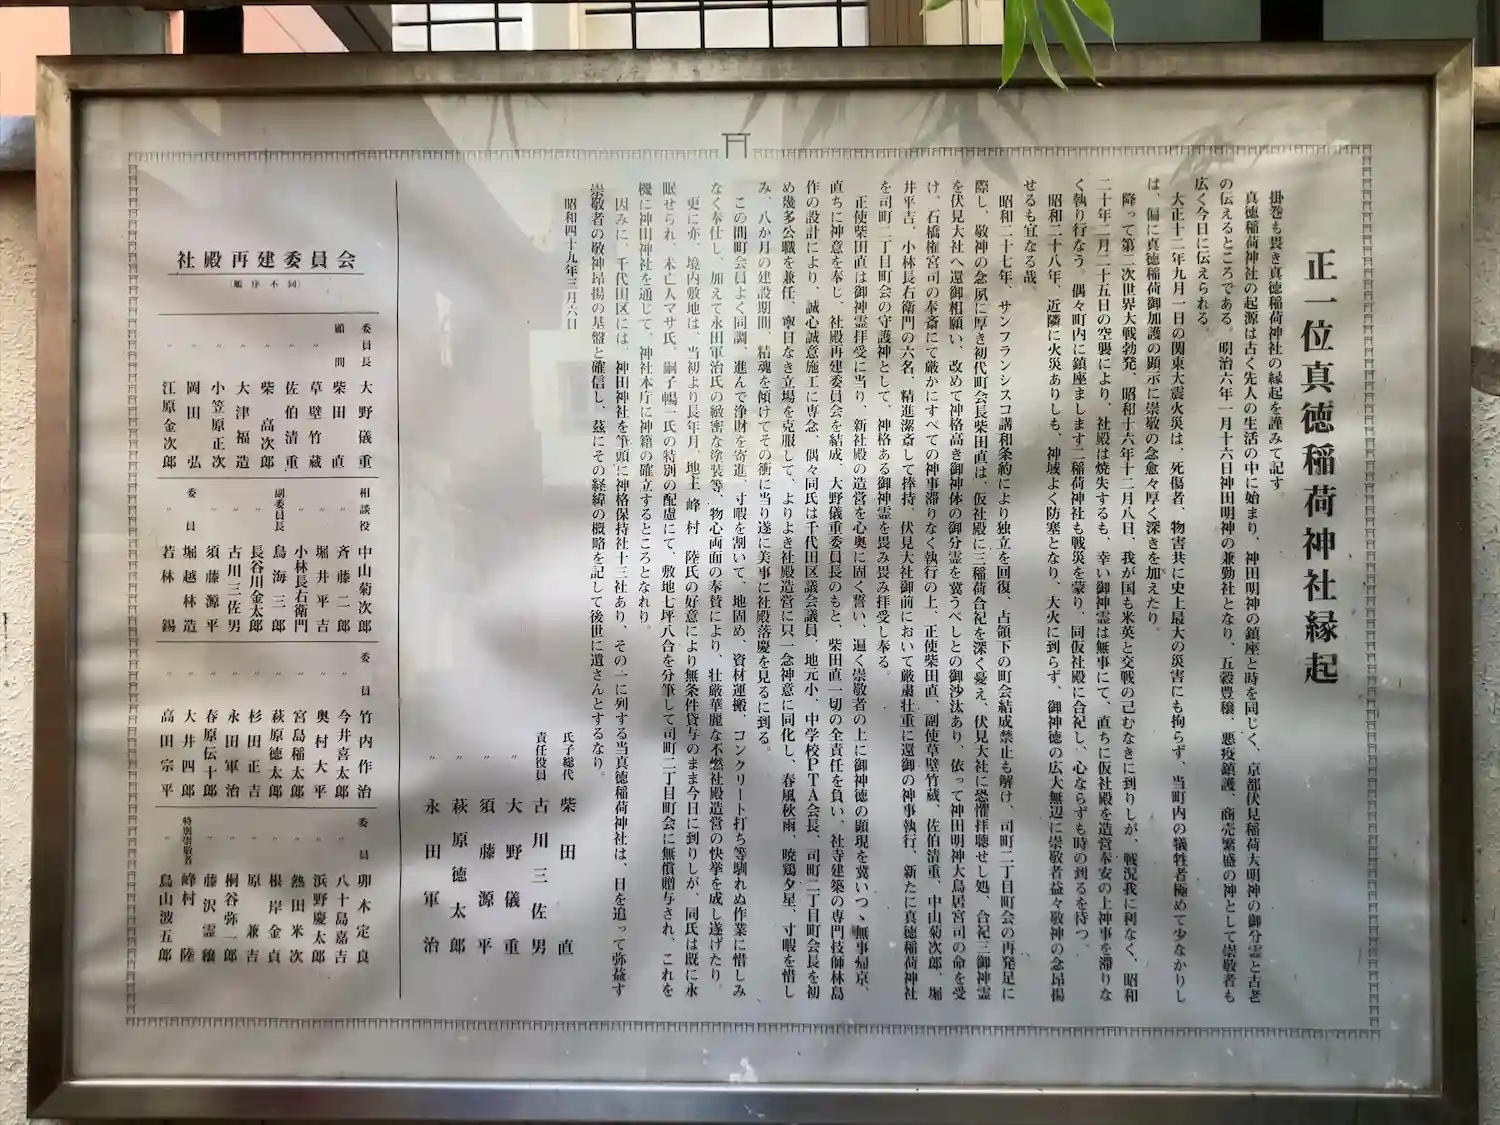 正一位真徳稲荷神社縁起
掛巻も畏き真徳稲荷神社の縁起を謹みて記す。
真徳稲荷神社の起源は古く先人の生活の中に始まり、神田明神の鎮座と時を同じく、京都伏見稲荷大明神の御分霊と古老
の伝えるところである。明治六年一月十六日神田明神の兼勤社となり、五穀豊穣、悪疫鎮護、商売繁盛の神として崇敬者も
広く今日に伝えられる。
大正十二年九月一日の関東大震火災は、死傷者、物害共に史上最大の災害にも拘らず、当町内の犠牲者極めて少なかりし
は、偏に真徳稲荷御加護の顕示に崇敬の念愈々厚く深きを加えたり。
降って第二次世界大戦勃発、昭和十六年十二月八日、我が国も米英と交戦の已むなきに到りしが、戦況我に利なく、昭和
二十年二月二十五日の空襲により、社殿は焼失するも、幸い御神霊は無事にて、直ちに仮社殿を造営奉安の上神事を滞りな
く執り行なう。偶々町内に鎮座まします二稲荷神社も戦災を蒙り、同仮社殿に合祀し、心ならずも時の到るを待つ。
昭和二十八年、近隣に火災ありしも、神域よく防塞となり、大火に到らず、御神徳の広大無辺に崇敬者益々敬神の念昂揚
せるも宜なる哉。
昭和二十七年、サンフランシスコ講和条約により独立を回復、占領下の町会結成禁止も解け、司町二丁目町会の再発足に
際し、敬神の念夙に厚き初代町会長柴田直は、仮社殿に三稲荷合祀を深く憂え、伏見大社に恐懼拝聴せし処、合祀三御神霊
を伏見大社へ還御相願い、改めて神格高き御神体の御分霊を冀うべしとの御沙汰あり、依って神田明神大鳥居宮司の命を受
け、石橋権宮司の奉斎にて厳かにすべての神事滞りなく執行の上、正使柴田直、副使草壁竹蔵、佐伯清重、中山菊次郎、堀
井平吉、小林長右衛門の六名、精進潔斎して捧持、伏見大社御前において厳粛壮重に還御の神事執行、新たに真徳稲荷神社
を司町二丁目町会の守護神として、神格ある御神霊を畏み畏み拝受し奉る。
正使柴田直は御神霊拝受に当り、新社殿の造営を心奥に固く誓い、遍く崇敬者の上に御神徳の顕現を冀いつゝ無事帰京、
直ちに神意を奉じ、社殿再建委員会を結成、大野儀重委員長のもと、柴田直一切の全責任を負い、社寺建築の専門技師林島
作の設計により、誠心誠意施工に専念、偶々同氏は千代田区議会議員、地元小、中学校PTA会長、司町二丁目町会長を初
め幾多公職を兼任、寧日なき立場を克服して、よりよき社殿造営に只一念神意に同化し、春風秋雨、暁鶏夕星、寸暇を惜し
み、八か月の建設期間、精魂を傾けてその衝に当り遂に美事に社殿落慶を見るに到る。
この間町会員よく同調、進んで浄財を寄進、寸暇を割いて、地固め、資材運搬、コンクリート打ち等馴れぬ作業に惜しみ
なく奉仕し、加えて永田軍治氏の緻密な塗装等、物心両面の奉賛により、壮厳華麗な不燃社殿造営の快挙を成し遂げたり。
更に亦、境内敷地は、当初より長年月、地主峰村 陸氏の好意により無条件貸与のまま今日に到りしが、同氏は既に永
眠せられ、未亡人マサ氏、嗣子暢一氏の特別の配慮にて、敷地七坪八合を分筆して司町二丁目町会に無償贈与され、これを
機に神田神社を通じて、神社本庁に神籍の確立するところとなれり。
因みに、千代田区には、神田神社を筆頭に神格保持社十三社あり、その一に列する当真徳稲荷神社は、日を追って弥益す
崇敬者の敬神昂揚の基盤と確信し、茲にその経緯の概略を記して後世に遺さんとするなり。
昭和四十九年三月六日
氏子総代 柴田直
責任役員 古川三佐男
〃 大野儀重
〃 須藤源平
萩原徳太郎
〃 永田軍治
社殿再建委員会
(順序不同)
委員長 大野儀重
顧問 柴田直
草壁竹蔵
〃 佐伯清重
柴高次郎
〃 大津福造
〃 小笠原正次
〃 岡田弘
〃 江原金次郎
相談役 中山菊次郎
〃 斉藤二郎
〃 堀井平吉
〃 小林長右衛門
副委員長 鳥海三郎
〃 長谷川金太郎
〃 古川三佐男
〃 須藤源平
委員 堀越林造
〃 若林錫
委員 竹内作治
〃 今井喜太郎
〃 奥村大平
〃 宮島稲太郎
〃 萩原徳太郎
〃 杉田正吉
〃 永田軍治
〃 春原伝十郎
〃 大井四郎
〃 高田宗平
委員 卯木定良
〃 八十島嘉吉
〃 浜野慶太郎
〃 熱田米次
〃 根岸金貞
〃 原兼吉
〃 桐谷弥一郎
〃 藤沢霊穣
特別崇敬者 峰村陸
〃 鳥山波五郎